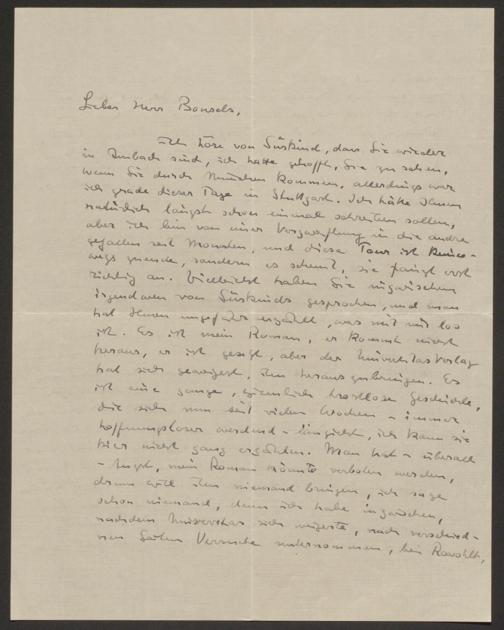 Lieber Herr Bonsels,
ich höre von Süskind, dass Sie wieder
in Ambach sind, ich hatte gehofft, Sie zu sehen,
wenn Sie durch München kommen, allerdings war
ich grade dieser Tage in Stuttgart. Ich hätte Ihnen
natürlich längst schon einmal schreiben sollen,
aber ich bin von einer Verzweiflung in die andre
gefallen seit Monaten, und diese Tour ist keines-
wegs zuende, sondern es scheint, sie fängt erst
richtig an. Vielleicht haben Sie inzwischen
irgendwen von Süskinds gesprochen, und man
hat Ihnen ungefähr erzählt, was mit mir los
ist. Es ist mein Roman, er kommt nicht
heraus, er ist gesetzt, aber der Universitas Verlag
hat sich geweigert, ihn herauszubringen. Es
ist eine ganze, ziemlich trostlose Geschichte,
die sich nun seit vielen Wochen - immer
hoffnungsloser werdend - hinzieht, ich kann sie
hier nicht ganz erzählen. Man hat - überall
- Angst, mein Roman könnte verboten werden,
drum will ihn niemand bringen, ich sage
schon niemand, denn ich habe inzwischen,
nachdem Universitas sich weigerte, nach verschied-
nen Seiten Versuche unternommen, bei Rowohlt,